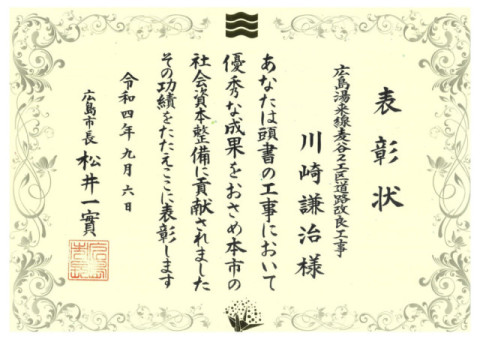 表彰状
広島湯来線麦谷2工区道路改良工事
川崎謙治様
あなたは頭書の工事において
優秀な成果をおさめ本市の
社会資本整備に貢献されました
その功績をたたえここに表彰します
令和四年九月六日
広島市長 松井一實